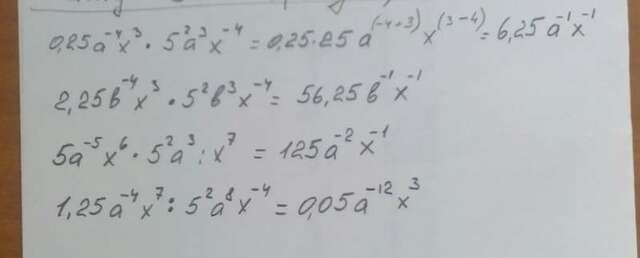 0,25a⁻⁴x³ · 5²a³x⁻⁴ = 0,25·25 a⁽⁻⁴⁺³⁾ x⁽³⁻⁴⁾ = 6,25 a⁻¹x⁻¹
2,25в⁻⁴x³ · 5²в³x⁻⁴ = 56,25 в⁻¹x⁻¹
5a⁻⁵x⁶ · 5²a³ : x⁷ = 125a⁻²x⁻¹
1,25a⁻⁴x⁷ : 5²a⁸x⁻⁴ = 0,05a⁻¹²x³